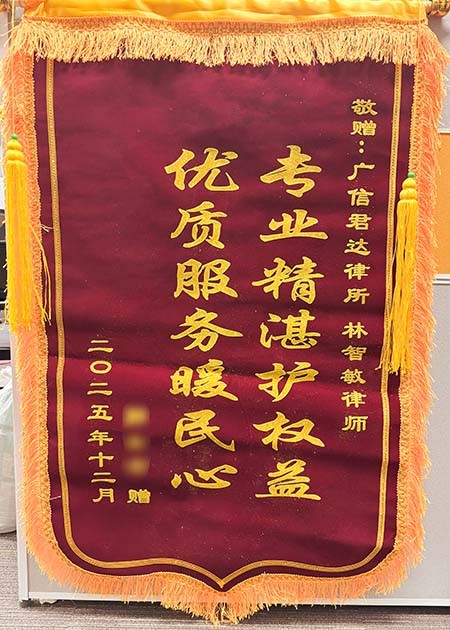 敬赠：广信君达律所 林智敏律师
专业精湛护权益
优质服务暖民心
赠
二〇二五年十二月